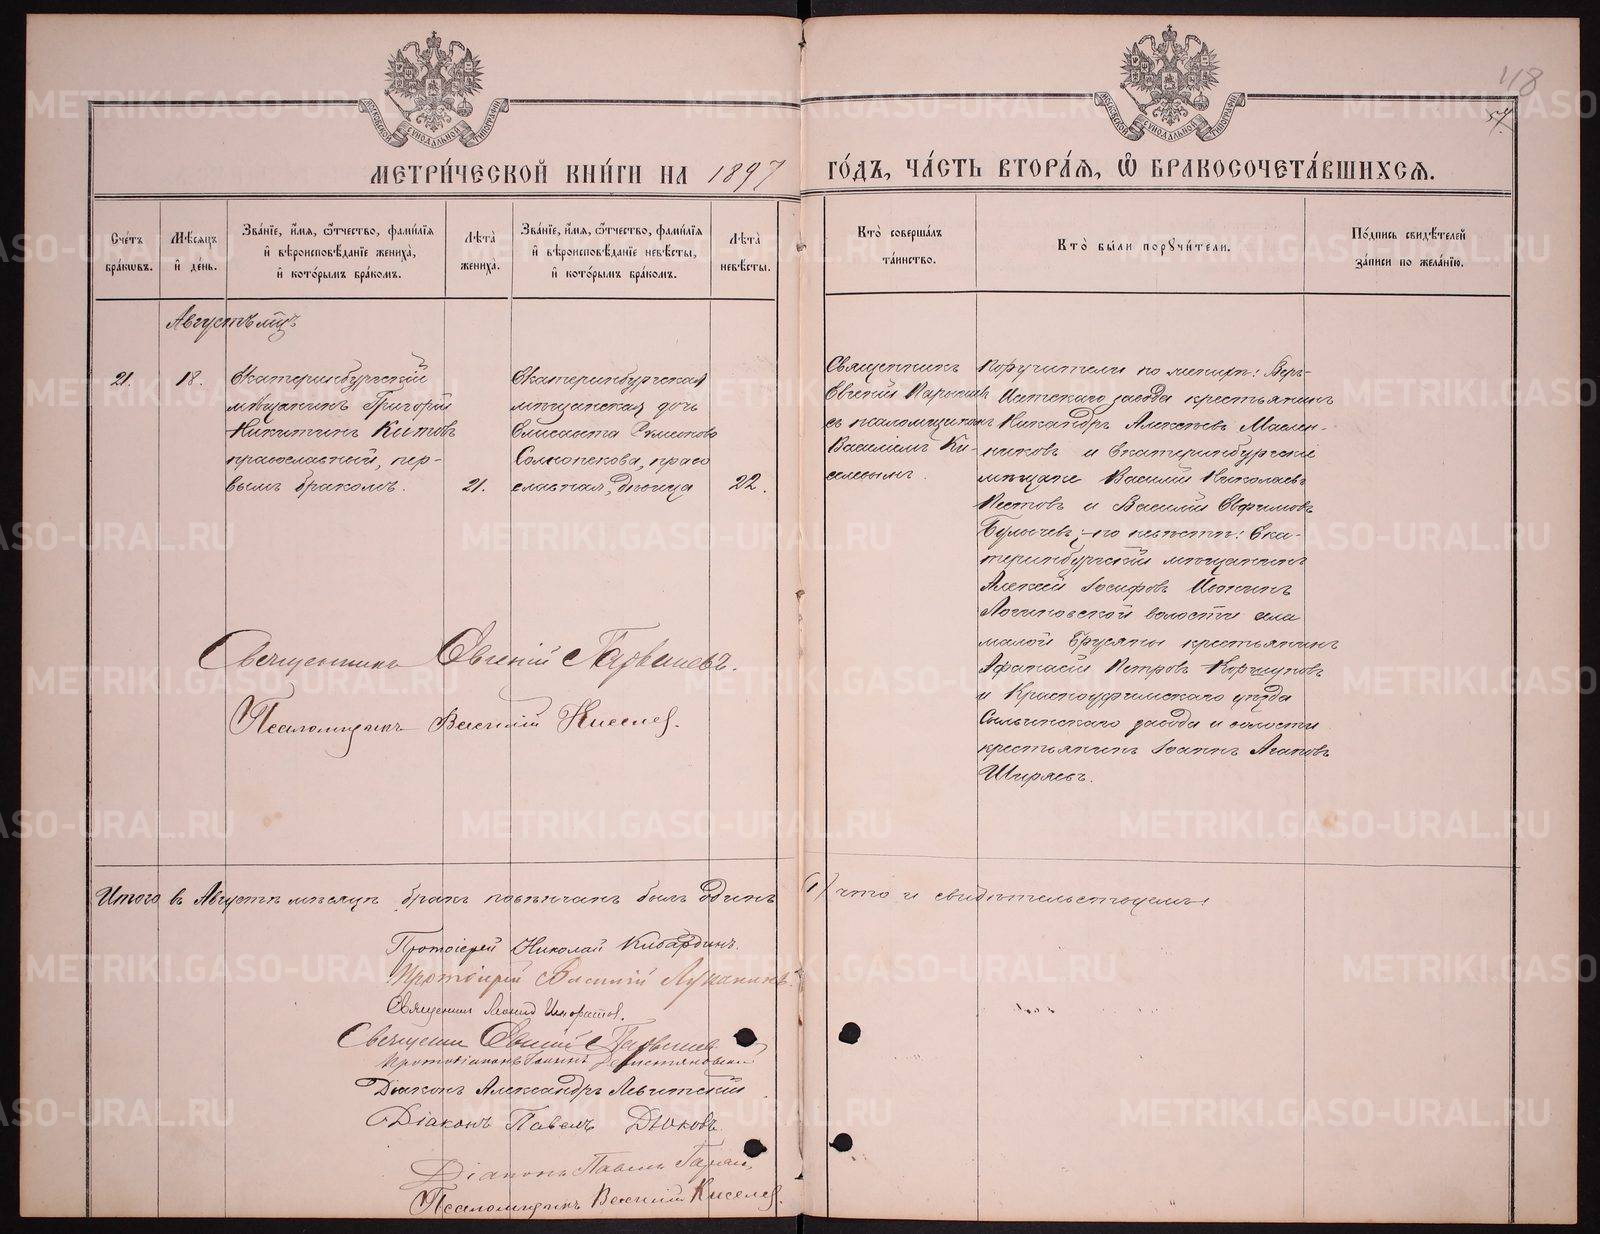 48
57.
МОСКОВСКОЙ СѴНОДАЛЬНОЙ ТИПОГРАФІИ
МОСКОВСКОЙ СѴНОДАЛЬНОЙ ТИПОГРАФІИ
МЕТРИ́ЧЕСКОЙ КНИ́ГИ НА 1897 ГО́ДЪ, ЧА́СТЬ ВТОРА́Я, Ѿ БРАКОСОЧЕТА́ВШИХСЯ.
Сче́тъ бра́ковъ.
Мѣ́сяцъ и де́нь.
Зва́нїе, и́мя, ѻ҆́тчество, фами́лїя и вѣроисповѣ́данїе жениха̀, и кото́рымъ бра́комъ.
Лѣ́та жениха̀.
Зва́нїе, и́мя, ѻ҆́тчество, фами́лїя и вѣроисповѣ́данїе невѣ́сты, и кото́рымъ бра́комъ.
Лѣ́та невѣ́сты.
Кто̀ соверша́лъ та́инство.
Кто̀ бы́ли порꙋчи́тели.
По́дпись свидѣ́телей за́писи по жела́нїю.
Августъ мцъ
21.
18.
Екатеринбургскій
мѣщанинъ Григорій
Никитинъ Китовъ
православный, пер-
вымъ бракомъ.
21.
Екатеринбургская
мѣщанская дочь
Елисавета Симеонова
православная, дѣвица
22.
Священникъ
Евгеній
съ псаломщикомъ
Василіемъ Ки-
селевымъ.
Поручители по женихѣ: Верх-
Исетскаго завода крестьянинъ
Никандръ Алексѣевъ Маслен-
никовъ и Екатеринбургскіе
мѣщане Василій Николаевъ
Пестовъ и Василій Евфимовъ
по невѣстѣ: Ека-
теринбургскій мѣщанинъ
Алексѣй Іосифовъ
Логиновской волости села
малой Брусяны крестьянинъ
Афанасій Петровъ Коршуновъ
и Красноуфимскаго уѣзда
Сылвинскаго завода и волости
крестьянинъ Іоаннъ Агаповъ
Ширяевъ.
Священникъ Евгеній
Псаломщикъ Василій Киселев.
Итого въ Августѣ мѣсяцѣ бракъ повѣнчанъ былъ одинъ (1) что и свидѣтельствуемъ:
Протоіерей Николай Кибардинъ.
Протоіерей Василій Луканинъ.
Священник Леонид Игноратов.
Священник Евгеній
Протодіаконъ Іоаннъ
Діаконъ Александръ Левитскій
Діаконъ Павелъ Дюковъ
Діаконъ Павелъ
Псаломщикъ Василій Киселев.
METRIKI.GASO-URAL.RU